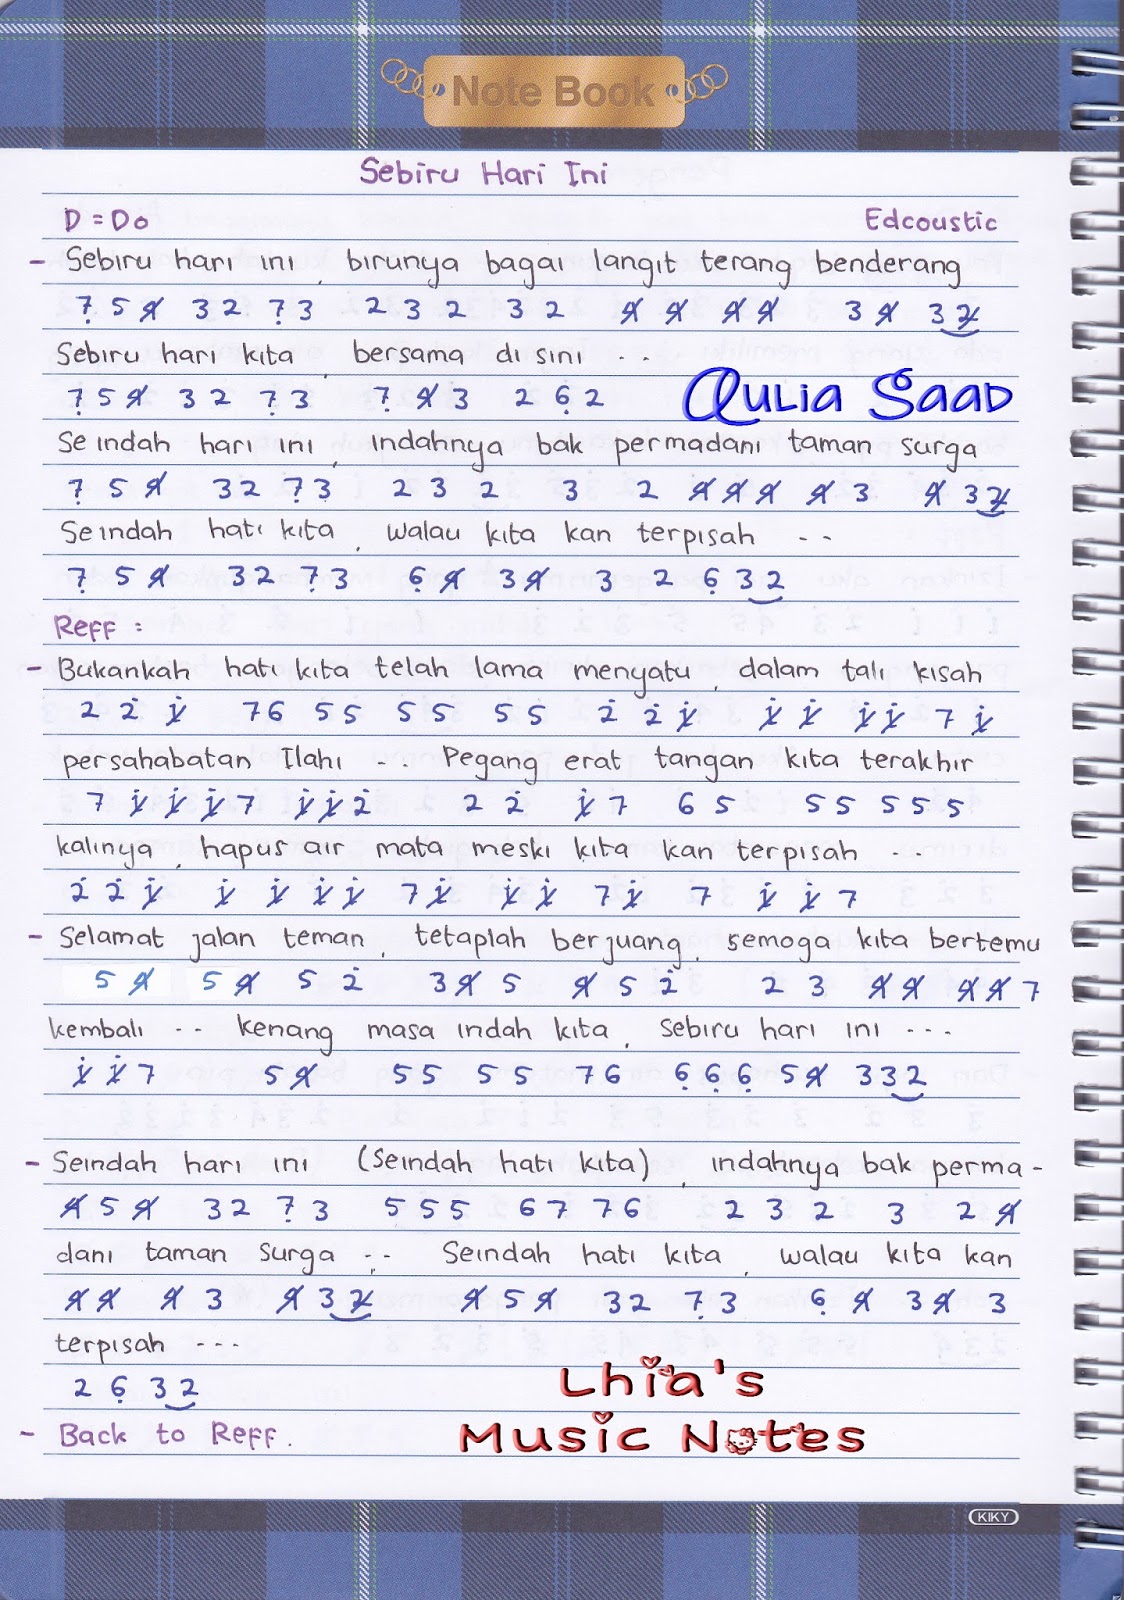 Note Book
Sebiru Hari Ini
D = Do Edcoustic
- Sebiru hari ini, birunya bagai langit terang benderang
7̣ 5 4̸ 3 2 7̣ 3 2 3 2 3 2 4̸ 4̸ 4̸ 4̸ 3 4̸ 3 2̸
Sebiru hari kita, bersama disini ...
7̣ 5 4̸ 3 2 7̣ 3 7̣ 4̸ 3 2 6̣ 2
Aulia Saad
Seindah hari ini, indahnya bak permadani taman surga
7̣ 5 4̸ 3 2 7̣ 3 2 3 2 3 2 4̸ 4̸ 4̸ 4̸ 3 4̸ 3 2̸
Seindah hati kita, walau kita kan terpisah ..
7̣ 5 4̸ 3 2 7̣ 3 6̣ 4̸ 3 4̸ 3 2 6̣ 3 2
Reff :
- Bukankah hati kita telah lama menyatu, dalam tali kisah
2 2̇ 1̸̇ 7 6 5 5 5 5 5 5 2̇ 2̇ 1̸̇ 1̸̇ 1̸̇ 1̸̇ 1̸̇ 7 1̸̇
persahabatan Ilahi ... Pegang erat tangan kita terakhir
7 1̸̇ 1̸̇ 1̸̇ 7 1̸̇ 1̸̇ 2̇ 2 2̇ 1̸̇ 7 6 5 5 5 5 5 5
kalinya, hapus air mata meski kita kan terpisah ...
2̇ 2̇ 1̸̇ 1̸̇ 1̸̇ 1̸̇ 1̸̇ 7 1̸̇ 1̸̇ 1̸̇ 7 1̸̇ 7 1̸̇ 1̸̇ 7
- Selamat jalan teman, tetaplah berjuang, semoga kita bertemu
5 4̸ 5 4̸ 5 2̇ 3 4̸ 5 4̸ 5 2̇ 2 3 4̸ 4̸ 4̸ 4̸ 7
kembali .. kenang masa indah kita, sebiru hari ini ...
1̸̇ 1̸̇ 7 5 4̸ 5 5 5 5 7 6 6̣ 6̣ 6̣ 5 4̸ 3 3 2
- Seindah hari ini (Seindah hati kita), indahnya bak perma -
4̸ 5 4̸ 3 2 7̣ 3 5 5 5 6 7 7 6 2 3 2 3 2 4̸
dani taman surga ... Seindah hati kita, walau kita kan
4̸ 4̸ 4̸ 3 4̸ 3 2̸ 4̸ 5 4̸ 3 2 7̣ 3 6̣ 4̸ 3 4̸ 3
terpisah ...
2 6̣ 3 2
- Back to Reff.
Lhia's
Music Notes
KIKY